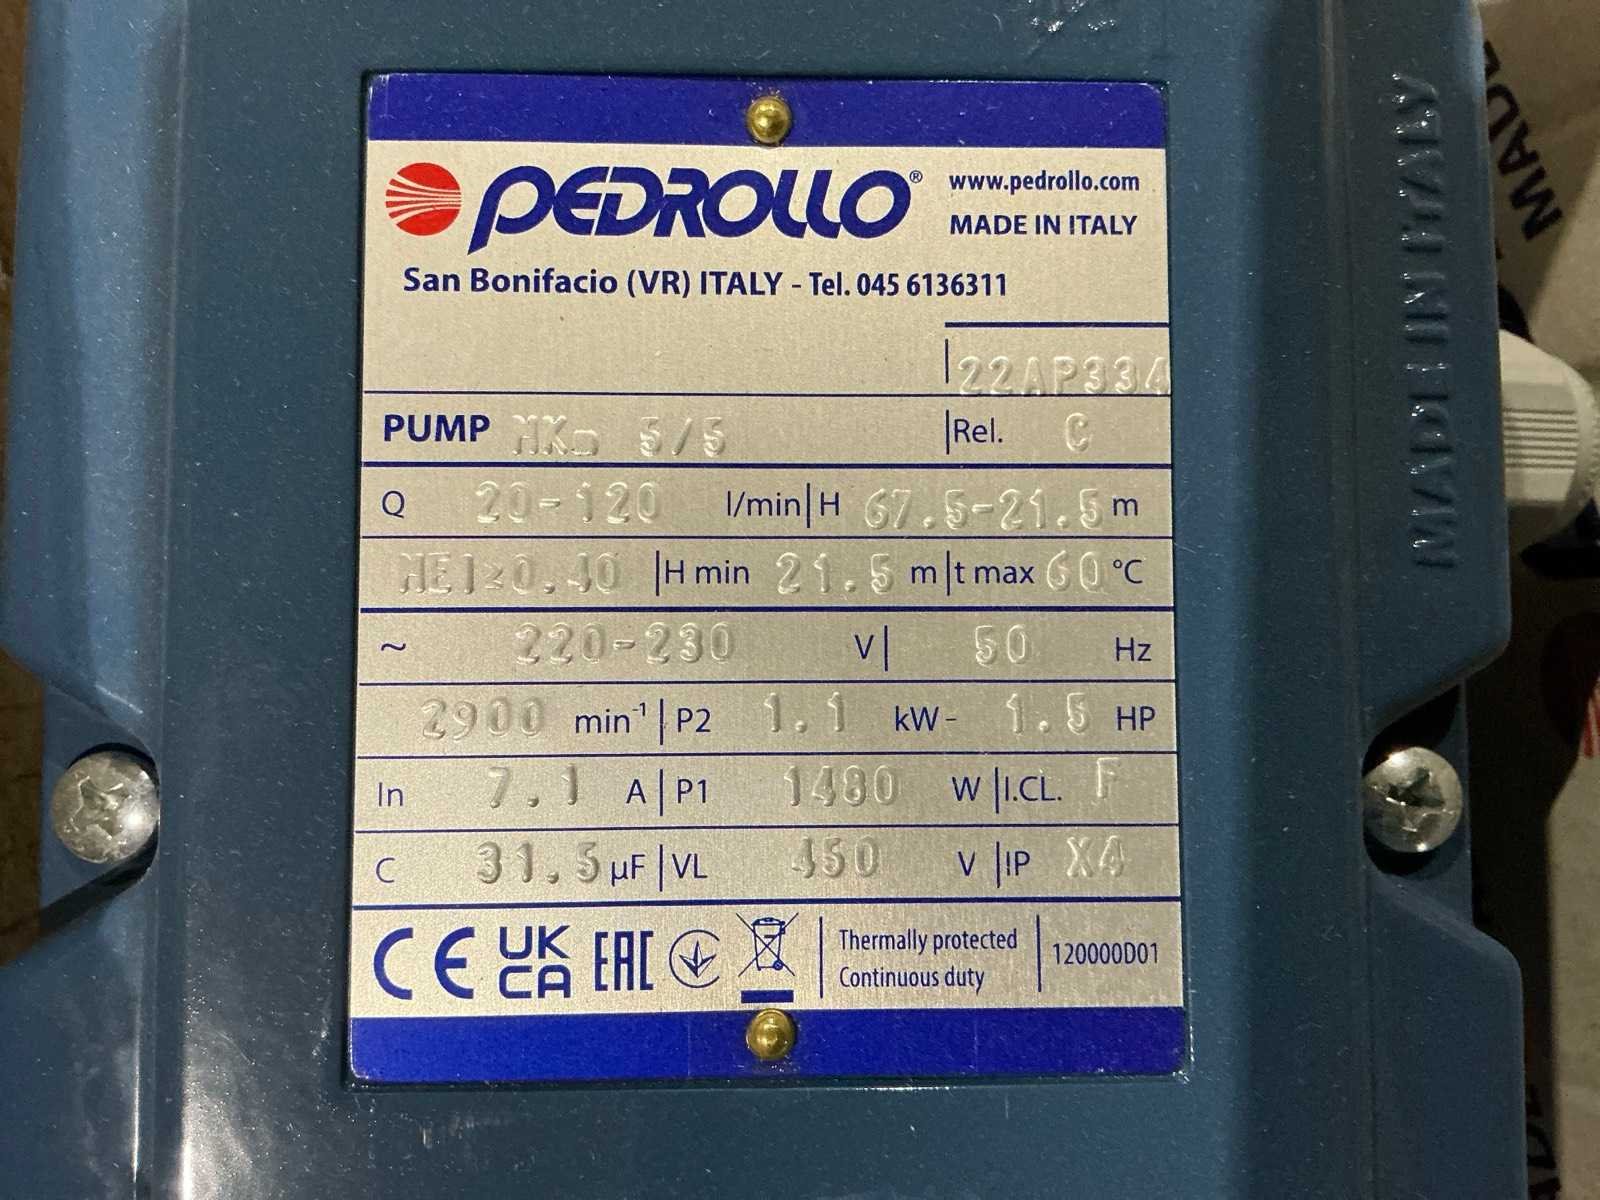 PEDROLLO® www.pedrollo.com
MADE IN ITALY
San Bonifacio (VR) ITALY - Tel. 045 6136311
22AP334
PUMP MKm 5/5 Rel. C
Q 20-120 l/min H 67.5-21.5 m
MEI≥0.40 H min 21.5 m t max 60 °C
~ 220-230 V 50 Hz
2900 min⁻¹ P2 1.1 kW - 1.5 HP
In 7.1 A P1 1480 W I.CL. F
C 31.5 µF VL 450 V IP X4
CE UK CA EAC Thermally protected
Continuous duty
120000D01
MADE IN ITALY
MADE